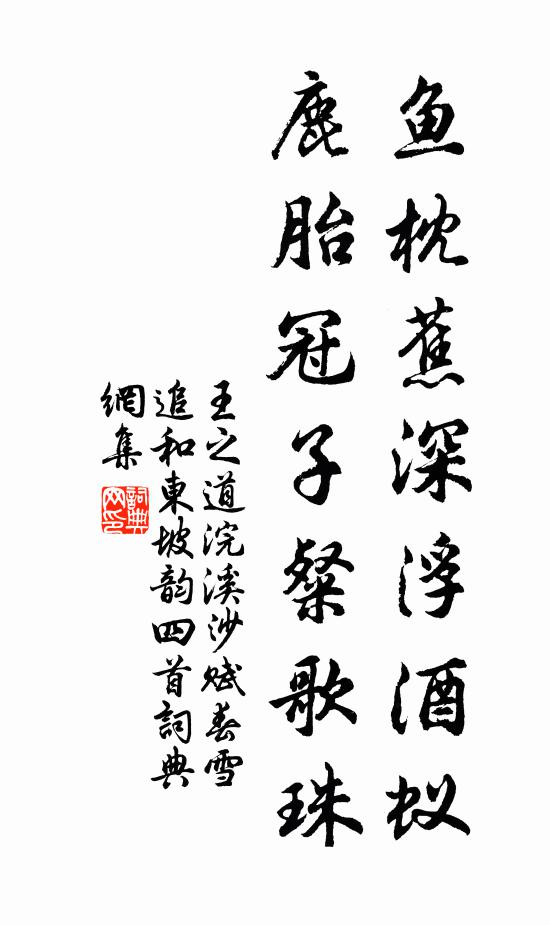 鱼枕蕉深浮酒蚁
鹿胎冠子粲歌珠
王之道浣溪沙赋春雪
追和東坡韵四首詞典
網集
詞典网印